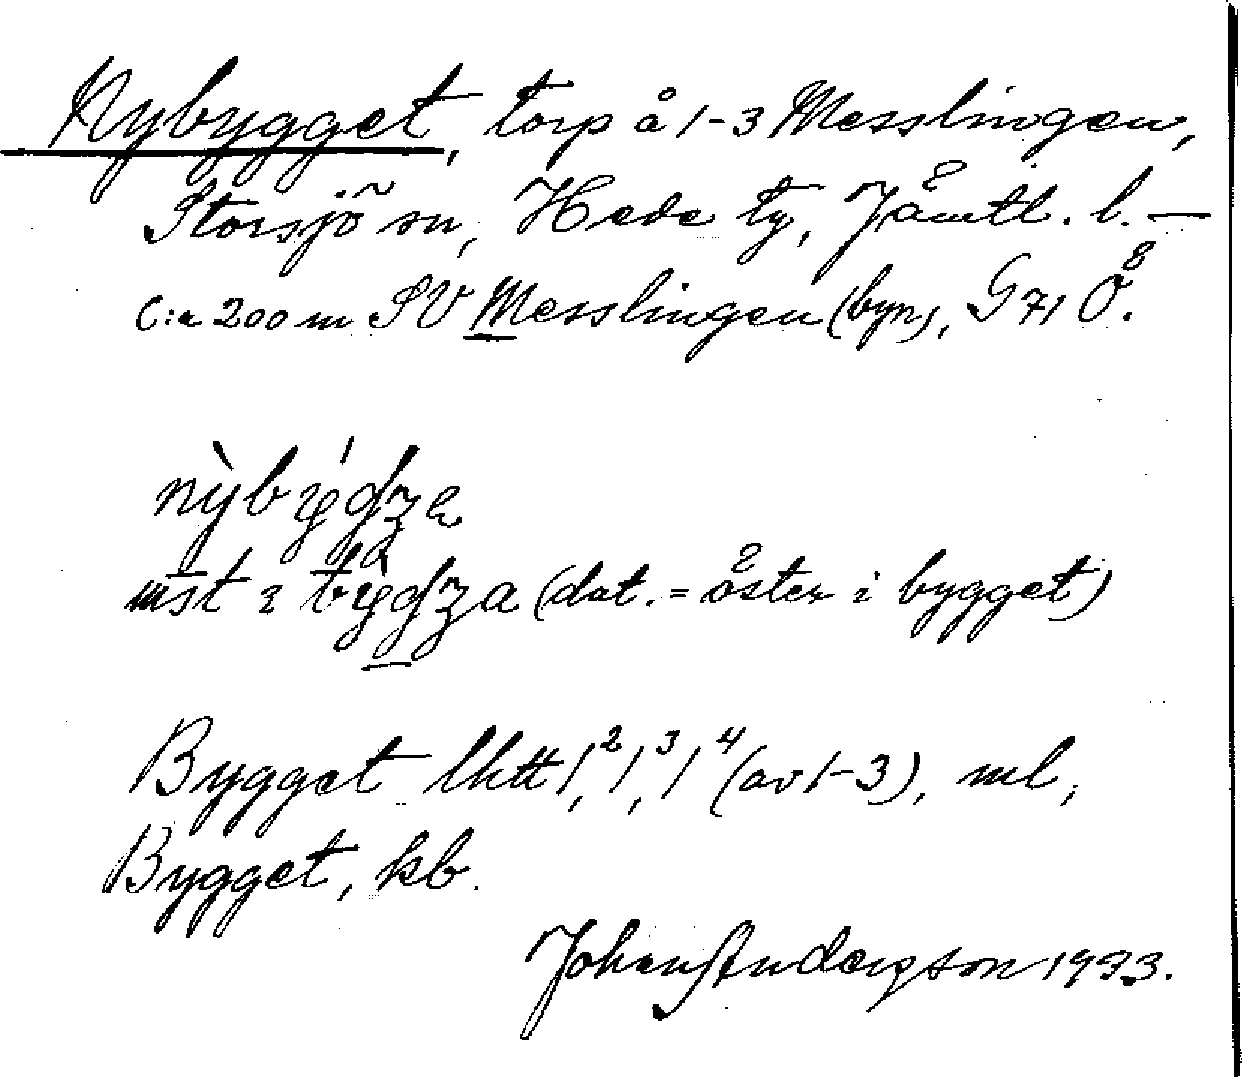 Nybygget, torp å 1-3 Messlingen,
Storsjö sn, Hede tg, Jämtl. l. —
C:a 200 m SV Messlingen (byn), G 71 Ö.
mst i (dat. = öster i bygget)
Bygget lhtt 1², 1³, 1⁴ (av 1-3), ml,
Bygget, kb.
Johan Andersson 1933.